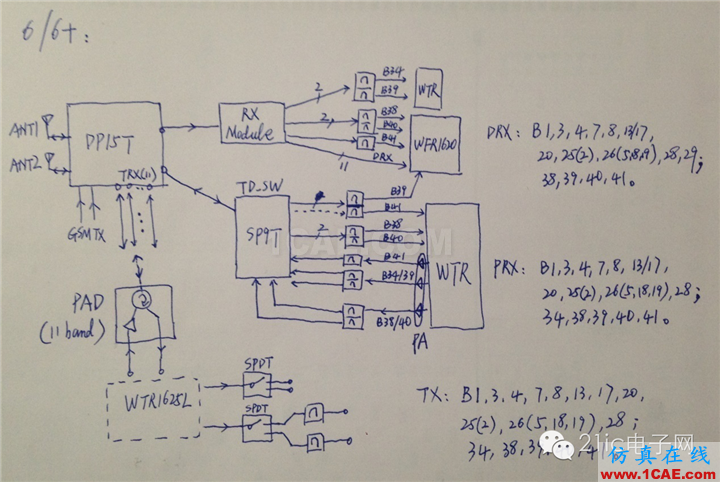 6/6+:
ANT1
ANT2
DP15T
TRX(11)
GSMTX
RX
Module
2
B34
B39
WTR
2
B38
B40
B41
11
DRX
WFR1620
TD_SW
SP9T
B39
B41
2
B38
B40
B41
B34/39
B38/40
PA
WTR
PAD
(11 band)
WTR1625L
SPDT
SPDT
DRX: B1,3,4,7,8,13/17,
20,25(2),26(5,18,9),28,29;
38,39,40,41。
PRX: B1,3,4,7,8,13/17,
20,25(2),26(5,18,19),28;
34,38,39,40,41。
TX: B1,3,4,7,8,13,17,20,
25(2),26(5,18,19),28;
34,38,39
1CAE.COM
21ic电子网
仿真在线
www.1CAE.com